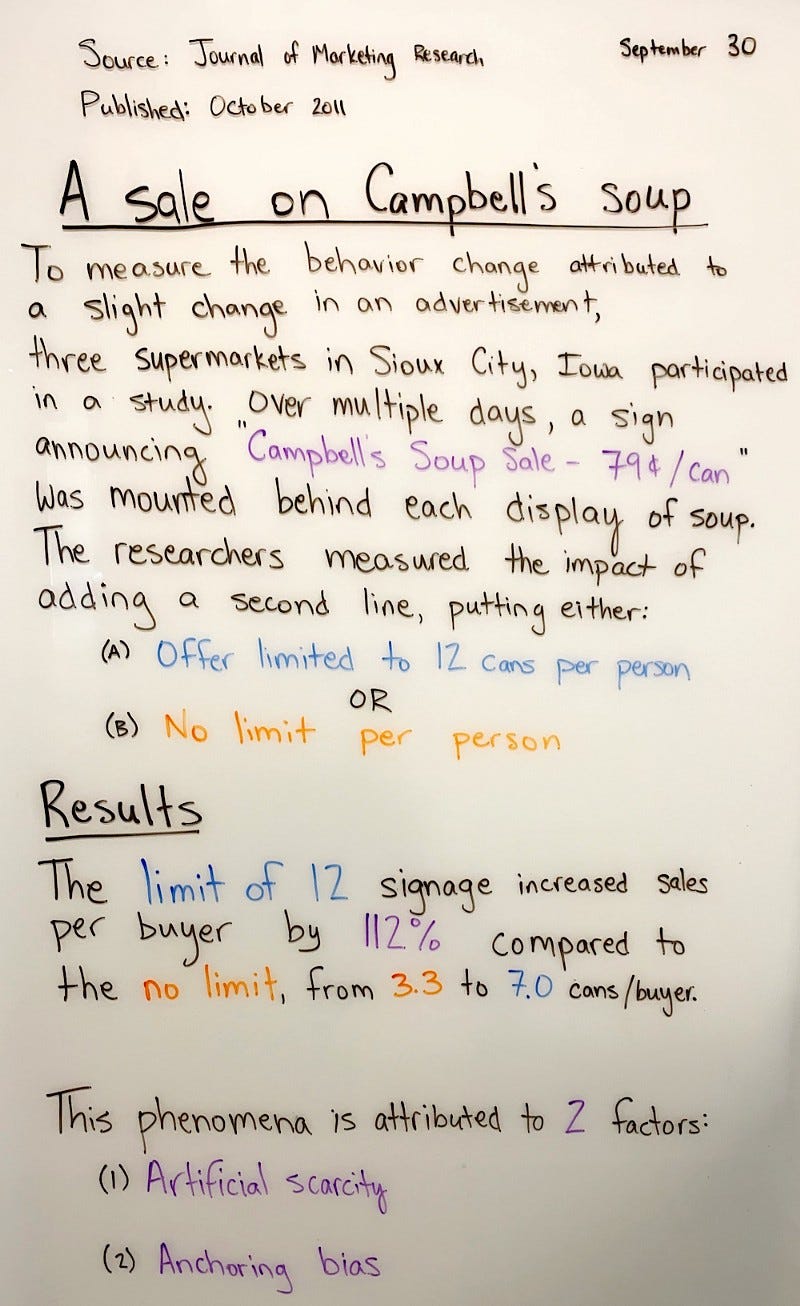 Source: Journal of Marketing Research
September 30
Published: October 2011
A sale on Campbell's soup
To measure the behavior change attributed to
a slight change in an advertisement,
three supermarkets in Sioux City, Iowa participated
in a study. Over multiple days, a sign
announcing "Campbell's Soup Sale - 79¢/can"
was mounted behind each display of soup.
The researchers measured the impact of
adding a second line, putting either:
(A) Offer limited to 12 cans per person
OR
(B) No limit per person
Results
The limit of 12 signage increased sales
per buyer by 112% compared to
the no limit, from 3.3 to 7.0 cans/buyer.
This phenomena is attributed to 2 factors:
(1) Artificial scarcity
(2) Anchoring bias